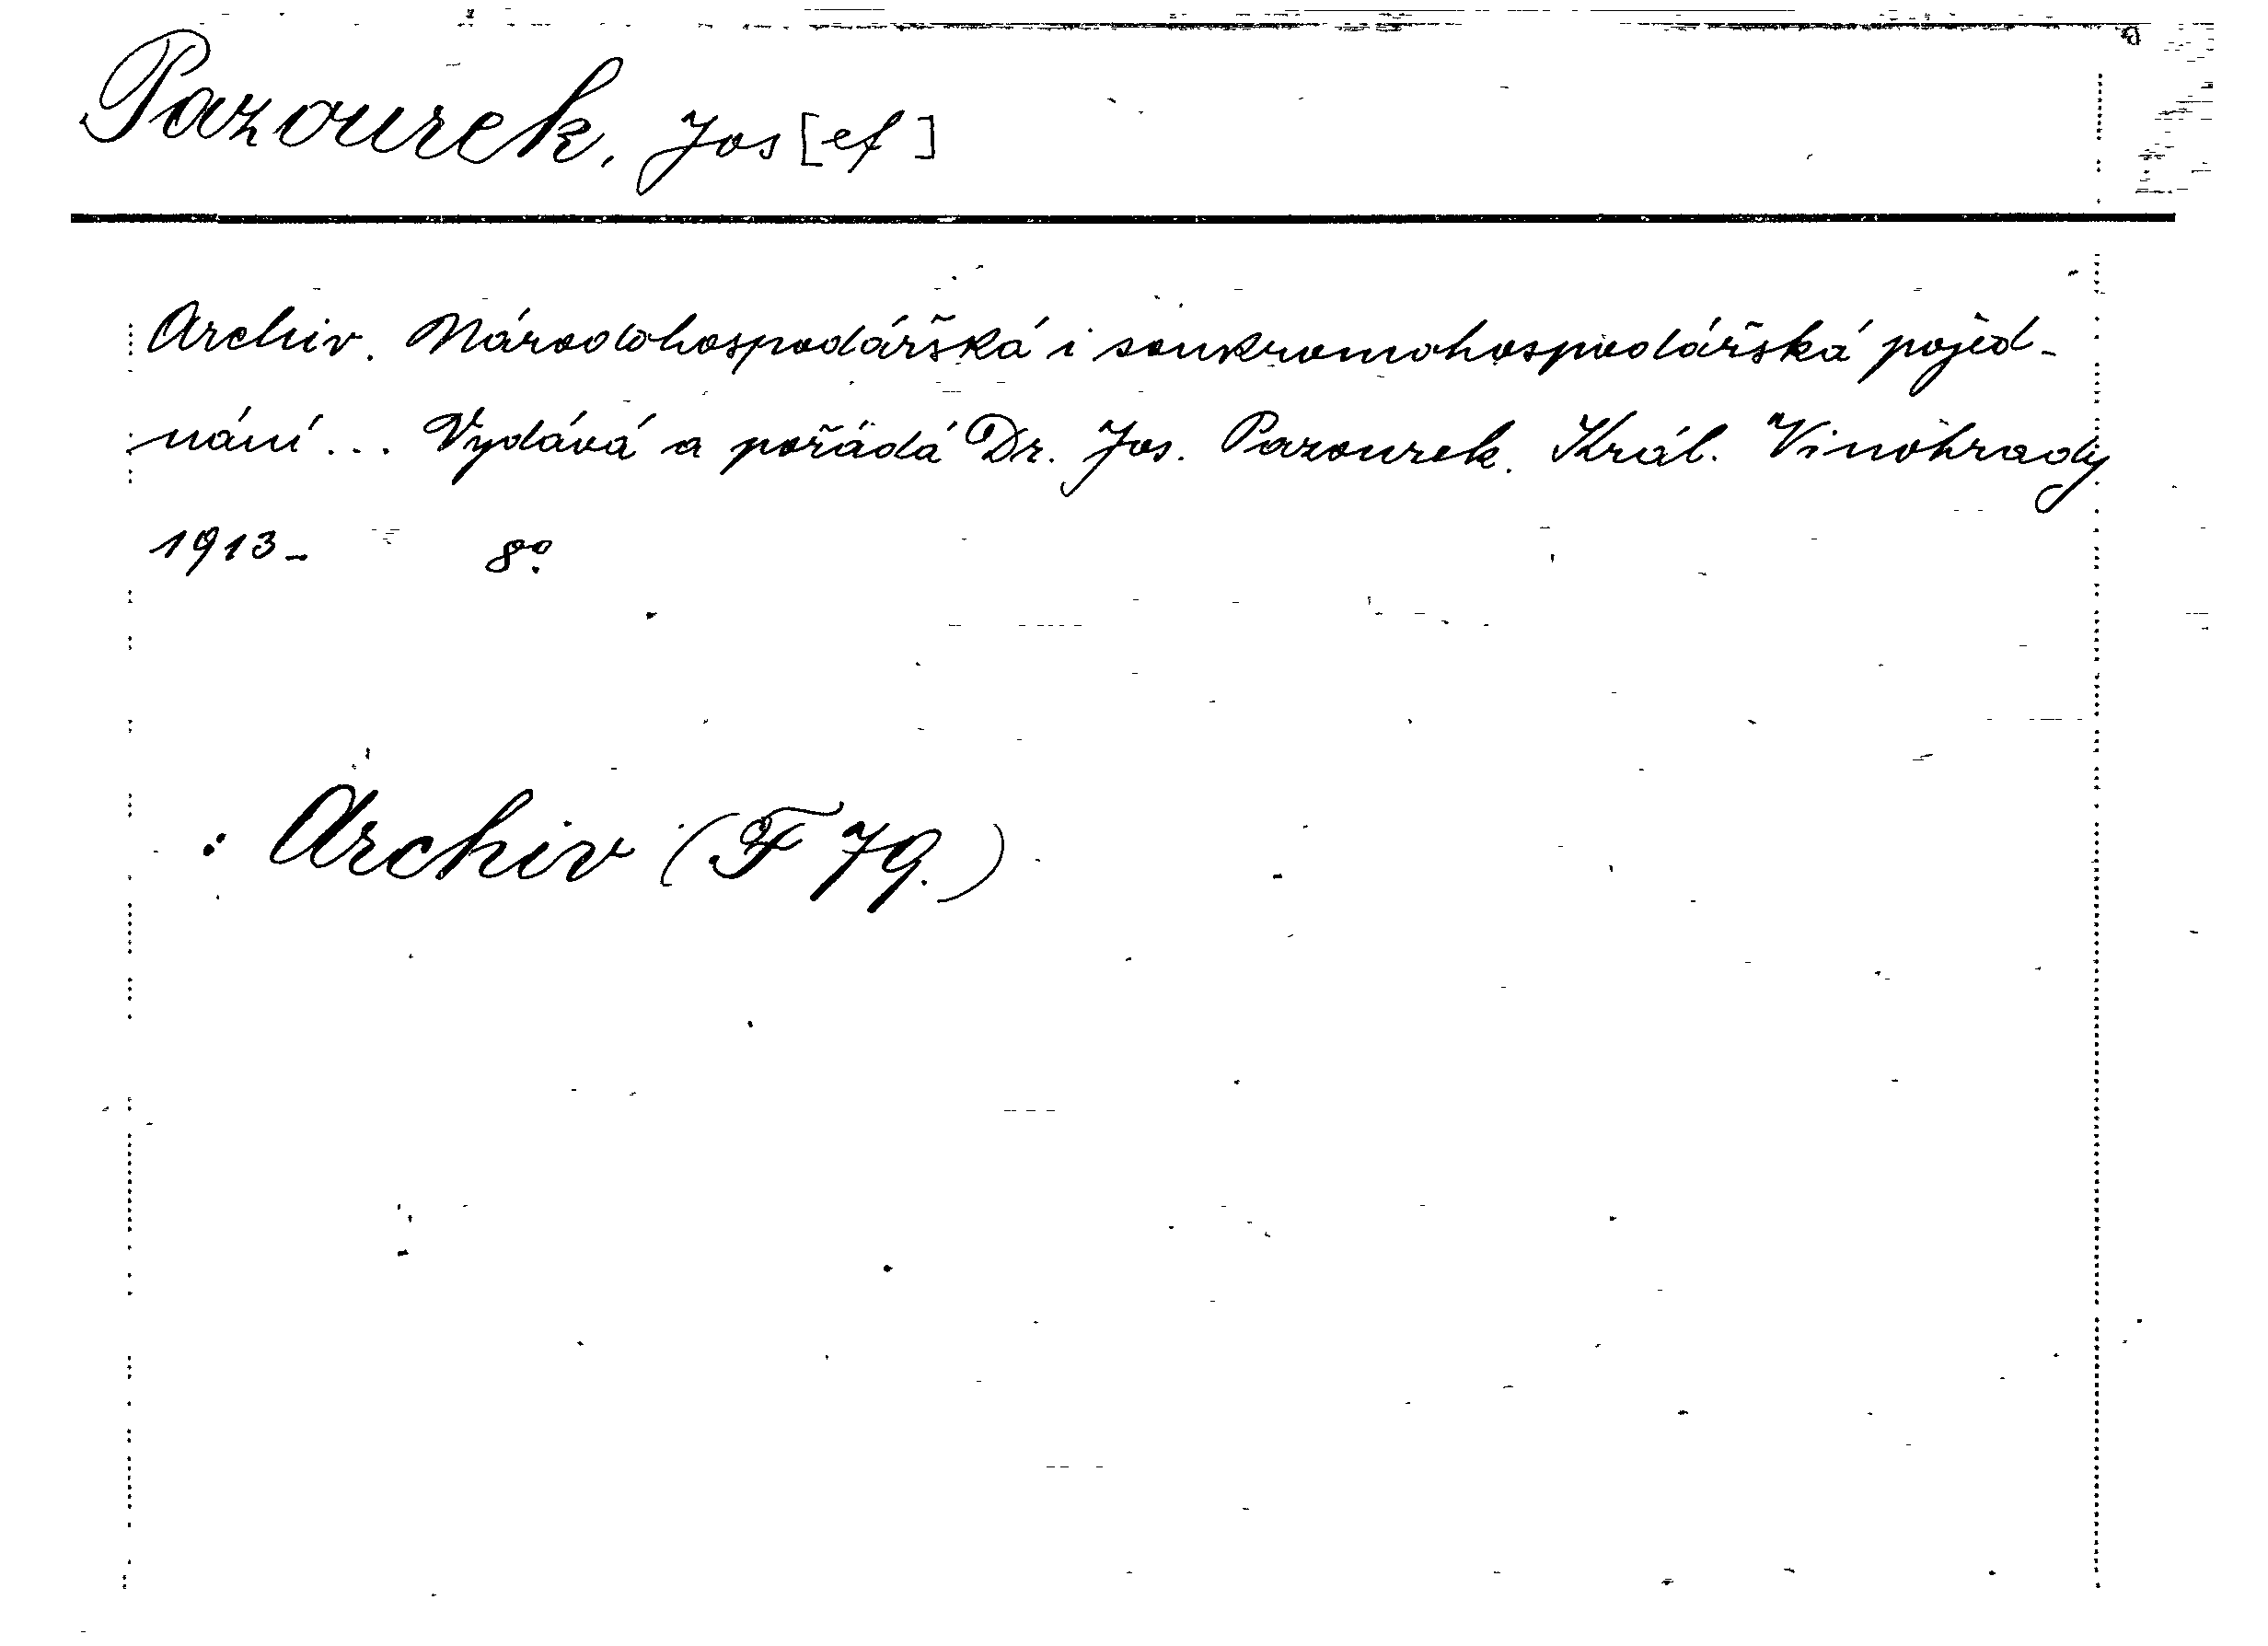 Pazourek, Jos[ef]
Archiv. Národohospodářská i soukromohospodářská pojed-
nání... Vydává a pořádá Dr. Jos. Pazourek. Král. Vinohrady
1913- 8°.
: Archiv (F 79.)